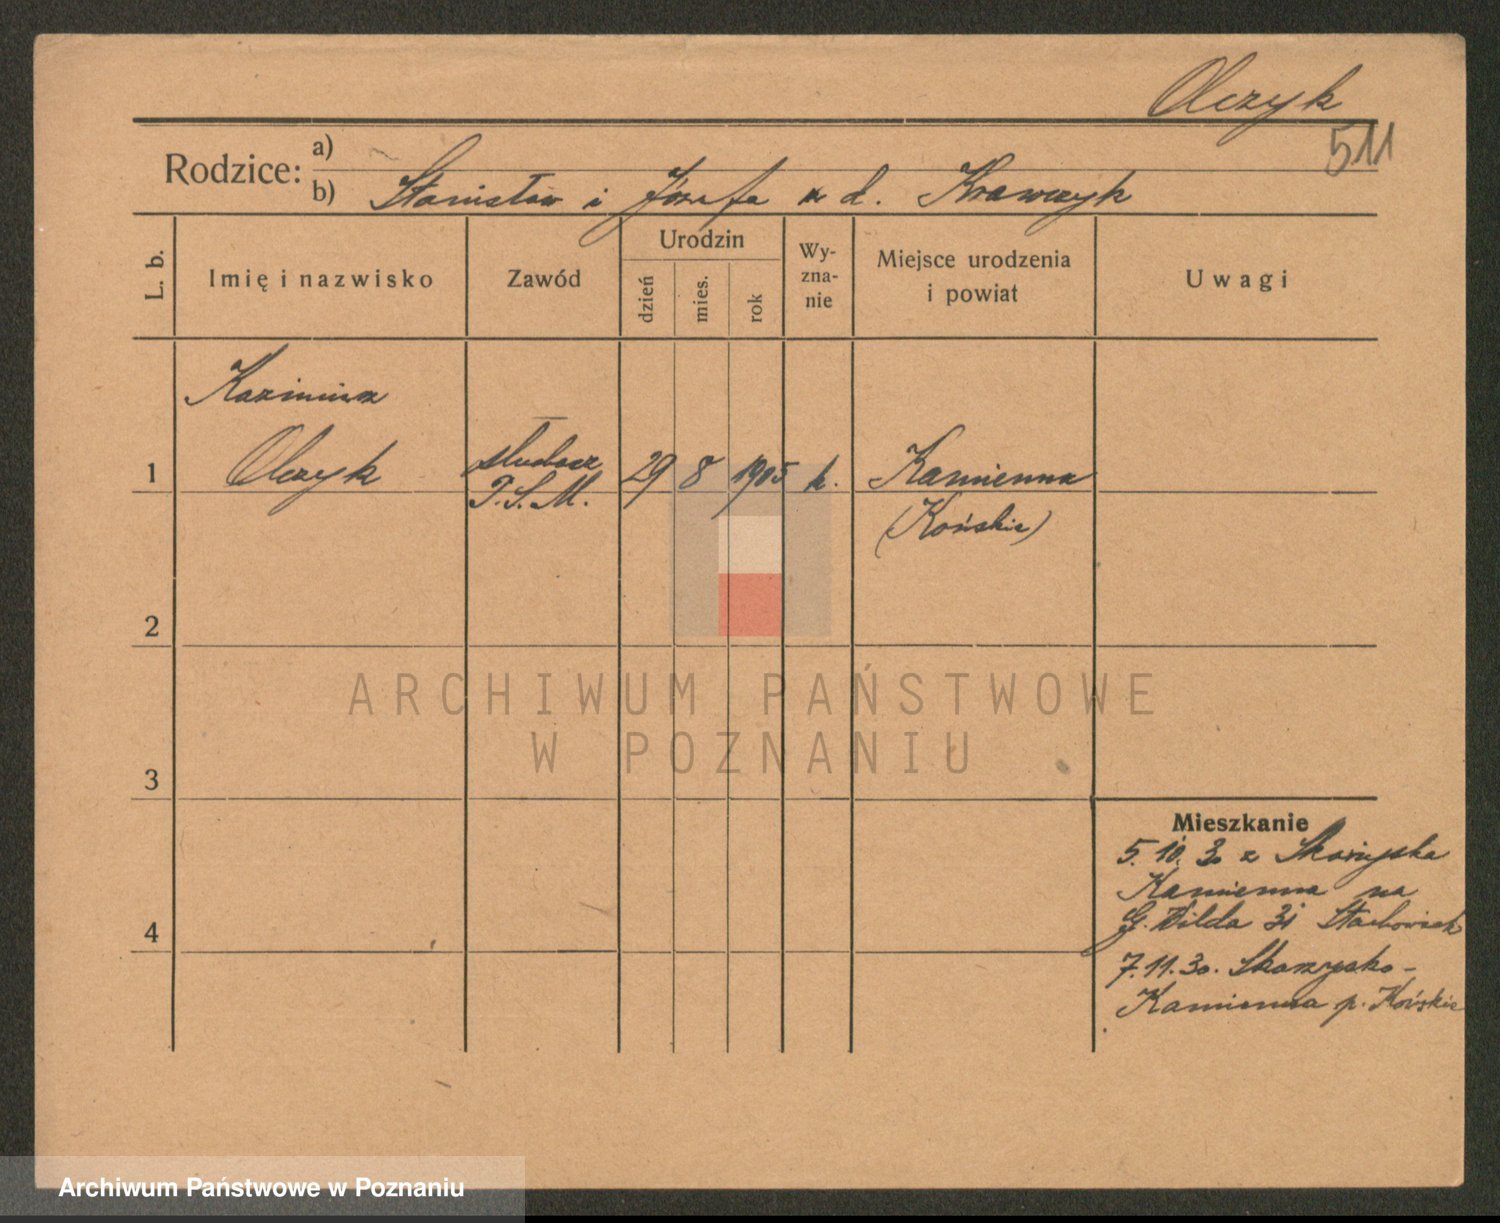 Olczyk
511
Rodzice:
a)
b) Stanisław i Józefa z d. Krawczyk
L. b.
Imię i nazwisko
Zawód
Urodzin
dzień
mies.
rok
Wy-
zna-
nie
Miejsce urodzenia
i powiat
Uwagi
Kazimierz
1 Olczyk słuchacz 29 8 1905 k. Kamienna
P.S.M. (Końskie)
2
3
4
Mieszkanie
5.10.30 z Skarżyska
Kamienna na
G. Wilda 31 Stachowiak
7.11.30. Skarzysko-
Kamienna p. Końskie
ARCHIWUM PAŃSTWOWE
W POZNANIU
Archiwum Państwowe w Poznaniu